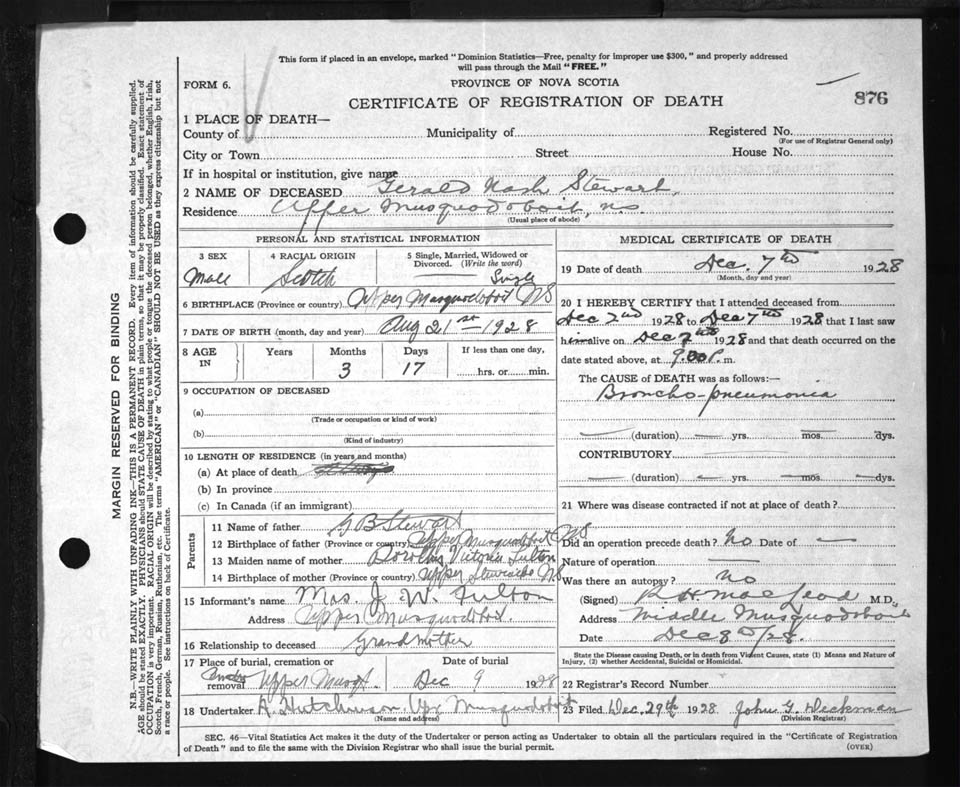 This form if placed in an envelope, marked “Dominion Statistics—Free, penalty for improper use $300,” and properly addressed
will pass through the Mail “FREE.”
FORM 6.
PROVINCE OF NOVA SCOTIA
CERTIFICATE OF REGISTRATION OF DEATH
876
1 PLACE OF DEATH—
County of Municipality of Registered No.
(For use of Registrar General only)
City or Town Street House No.
If in hospital or institution, give name
2 NAME OF DECEASED Gerald Nash Stewart
Residence Upper Musquodoboit, N.S.
(Usual place of abode)
PERSONAL AND STATISTICAL INFORMATION
3 SEX 4 RACIAL ORIGIN 5 Single, Married, Widowed or
Divorced. (Write the word)
Male Scotch Single
6 BIRTHPLACE (Province or country) Upper Musquodoboit NS
7 DATE OF BIRTH (month, day and year) Aug 21st 1928
8 AGE IN Years Months Days If less than one day,
3 17 hrs. or min.
9 OCCUPATION OF DECEASED
(a)
(Trade or occupation or kind of work)
(b)
(Kind of industry)
10 LENGTH OF RESIDENCE (in years and months)
(a) At place of death
(b) In province
(c) In Canada (if an immigrant)
Parents
11 Name of father G B Stewart
12 Birthplace of father (Province or country) Upper Musquodoboit NS
13 Maiden name of mother Dorothy Victoria Fulton
14 Birthplace of mother (Province or country) Upper Stewiacke NS
15 Informant's name Mrs. J. W. Fulton
Address Upper Musquodoboit.
16 Relationship to deceased Grandmother
17 Place of burial, cremation or Date of burial
removal Upper Musqt. Dec 9 1928
18 Undertaker A. Hutchinson Up. Musquodoboit
(Name and address)
MEDICAL CERTIFICATE OF DEATH
19 Date of death Dec. 7th 1928
(Month, day and year)
20 I HEREBY CERTIFY that I attended deceased from
Dec 2nd 1928 to Dec 7th 1928 that I last saw
him alive on Dec 7th 1928 and that death occurred on the
date stated above, at 9.00 P. m.
The CAUSE OF DEATH was as follows:—
Broncho-pneumonia
(duration) yrs. mos. dys.
CONTRIBUTORY
(duration) yrs. mos. dys.
21 Where was disease contracted if not at place of death?
Did an operation precede death? No Date of —
Nature of operation —
Was there an autopsy? No
(Signed) R H MacLeod M.D.,
Address Middle Musquodoboit
Date Dec 8th/28.
State the Disease causing Death, or in death from Violent Causes, state (1) Means and Nature of
Injury, (2) whether Accidental, Suicidal or Homicidal.
22 Registrar's Record Number
23 Filed Dec. 29th 1928 John G. Deckman
(Division Registrar)
SEC. 46—Vital Statistics Act makes it the duty of the Undertaker or person acting as Undertaker to obtain all the particulars required in the “Certificate of Registration
of Death” and to file the same with the Division Registrar who shall issue the burial permit.
(OVER)
MARGIN RESERVED FOR BINDING
N.B.—WRITE PLAINLY WITH UNFADING INK—THIS IS A PERMANENT RECORD. Every item of information should be carefully supplied.
AGE should be stated EXACTLY. PHYSICIANS should STATE CAUSE OF DEATH in plain terms, so that it may be properly classified. Exact statement of
OCCUPATION is very important. RACIAL ORIGIN will be described by stating to what people or tongue the deceased person belonged, whether English, Irish,
Scotch, French, German, Russian, Ruthenian, etc. The terms “AMERICAN” or “CANADIAN” SHOULD NOT BE USED as they express citizenship but not
a race or people. See instructions on back of Certificate.